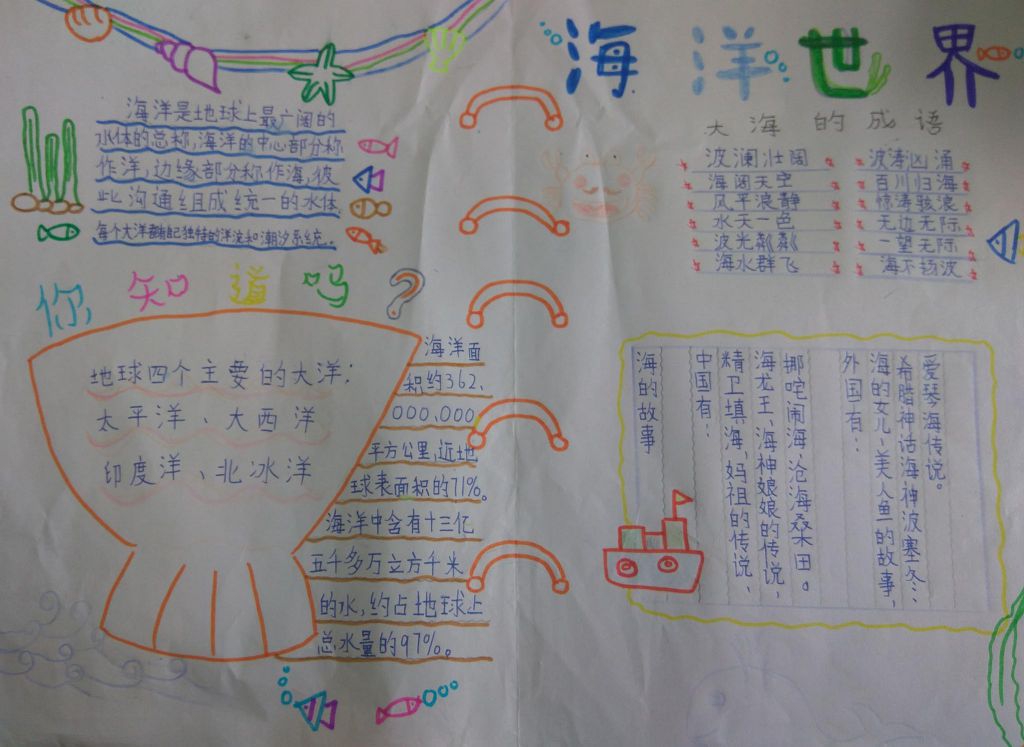 海洋世界
海洋是地球上最广阔的
水体的总称,海洋的中心部分称
作洋,边缘部分称作海,彼
此沟通组成统一的水体.
每个大洋都有自己独特的洋流和潮汐系统。
你知道吗?
地球四个主要的大洋:
太平洋、大西洋
印度洋、北冰洋
海洋面
积约362、
000、000
平方公里,近地
球表面积的71%。
海洋中含有十三亿
五千多万立方千米
的水,约占地球上
总水量的97%。
大海的成语
波澜壮阔 波涛汹涌
海阔天空 百川归海
风平浪静 惊涛骇浪
水天一色 无边无际
波光粼粼 一望无际
海水群飞 海不扬波
海的故事
中国有:
精卫填海,妈祖的传说、
海龙王、海神娘娘的传说,
挪咤闹海,沧海桑田。
外国有:
海的女儿,美人鱼的故事,
希腊神话海神波塞冬、
爱琴海传说。